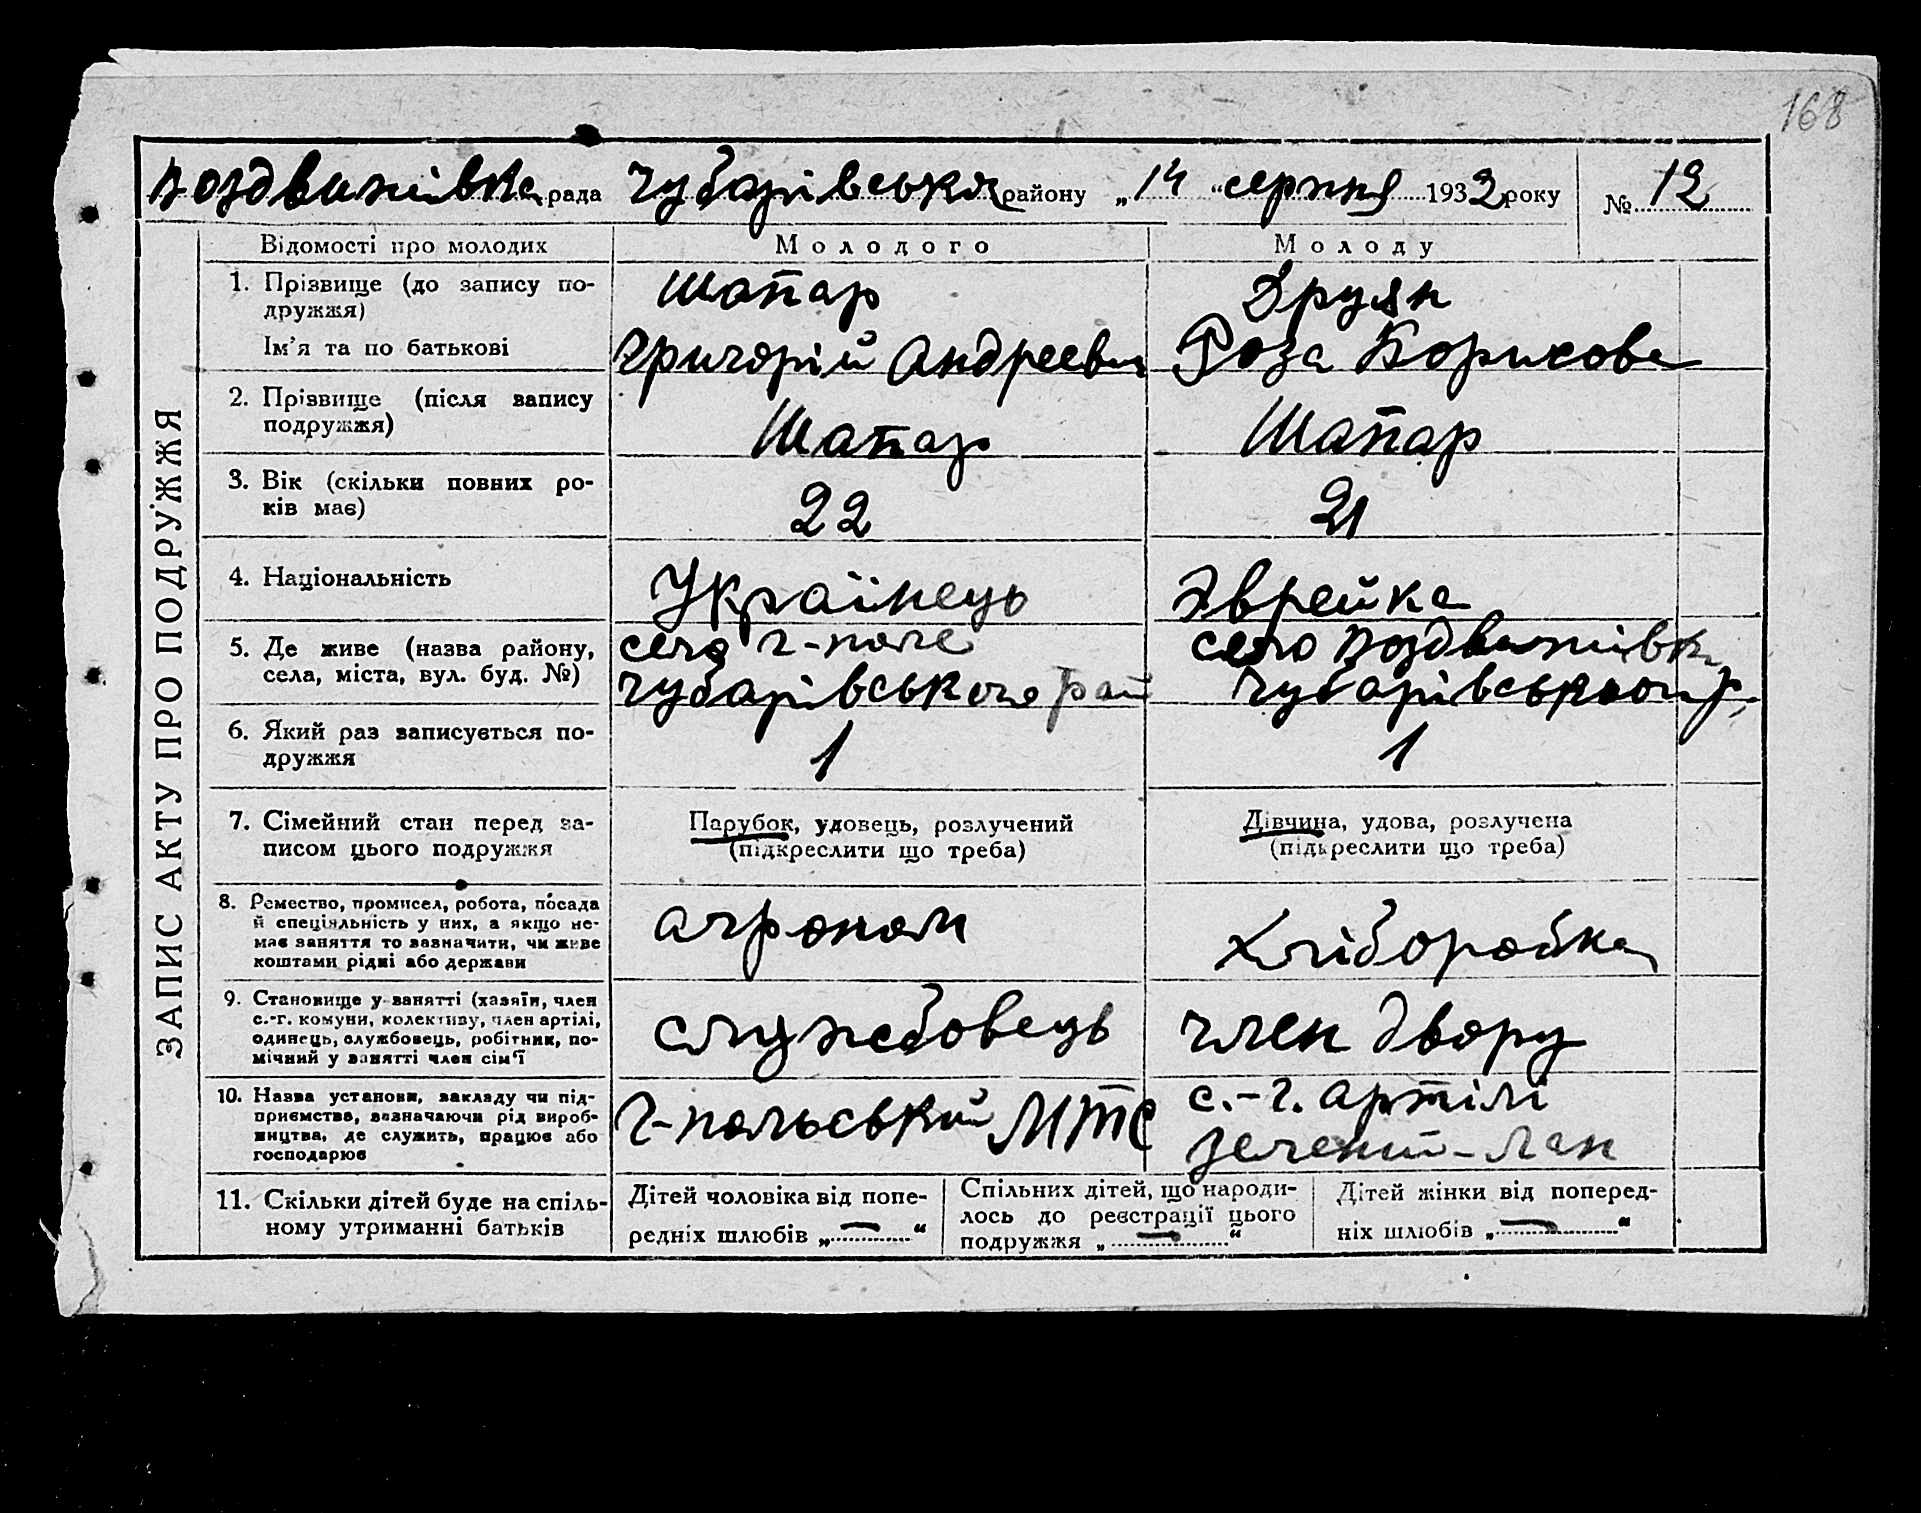 168
Воздвижівка рада Чубарівська району „14“ серпня 1932 року № 12
ЗАПИС АКТУ ПРО ПОДРУЖЖЯ
Відомості про молодих Молодого Молоду
1. Прізвище (до запису по- Шапар Друян
дружжя)
Ім’я та по батькові Григорій Андреевич Роза Борисова
2. Прізвище (після запису Шапар Шапар
подружжя)
3. Вік (скільки повних ро- 22 21
ків має)
4. Національність Українець Эврейка
5. Де живе (назва району, село Г-поле село Воздвижівка
села, міста, вул. буд. №) Чубарівського рай Чубарівського р,
6. Який раз записується по- 1 1
дружжя
7. Сімейний стан перед за- Парубок, удовець, розлучений Дівчина, удова, розлучена
писом цього подружжя (підкреслити що треба) (підкреслити що треба)
8. Ремество, промисел, робота, посада агроном Хліборобка
й спеціяльність у них, а якщо не-
має заняття то зазначити, чи живе
коштами рідні або держави
9. Становище у занятті (хазяїн, член службовець член двору
с.-г. комуни, колективу, член артілі,
одинець, службовець, робітник, по-
мічний у занятті член сім’ї
10. Назва установи, закладу чи під- Г-польський МТС с.-г. артілі
приємства, зазначаючи рід вироб- Зелений-Лан
ництва, де служить, працює або
господарює
11. Скільки дітей буде на спіль- Дітей чоловіка від попе- Спільних дітей, що народи- Дітей жінки від поперед-
ному утриманні батьків редніх шлюбів „—“ лось до реєстрації цього ніх шлюбів „—“
подружжя „—“